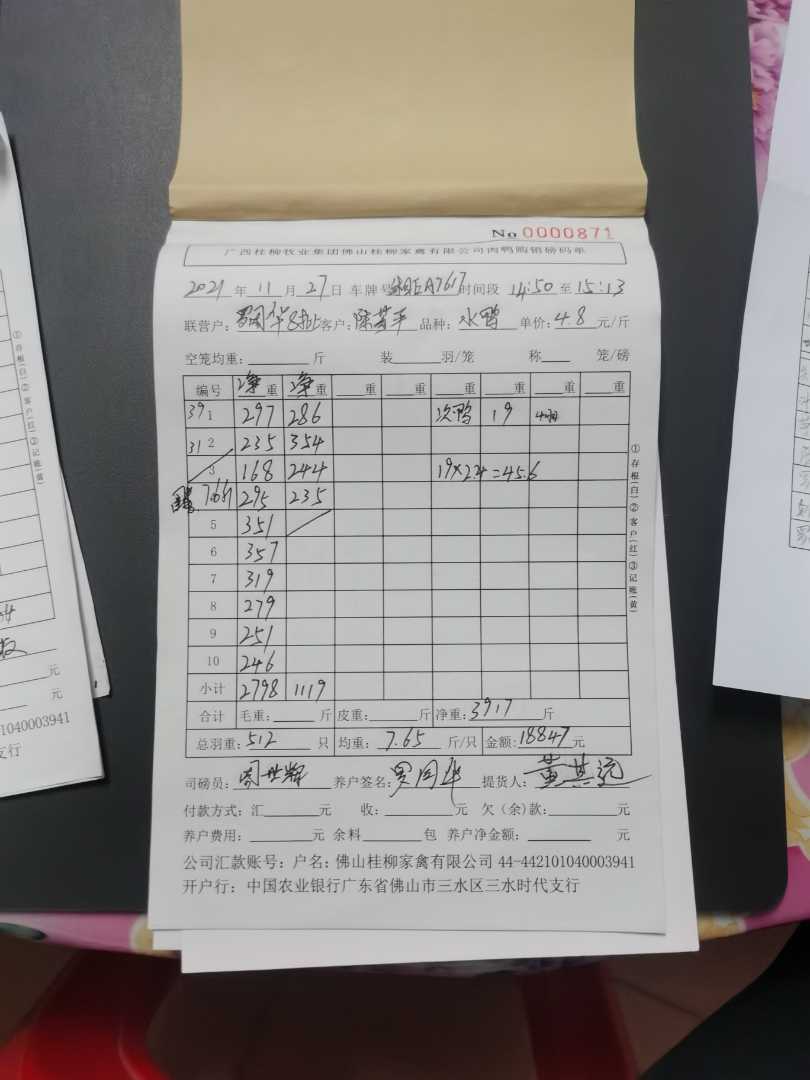 No 0000871
广西桂柳牧业集团佛山桂柳家禽有限公司肉鸭购销磅码单
2021 年 11 月 27 日 车牌号: A7617 时间段 14:50 至 15:13
联营户: 客户: 品种: 水鸭 单价: 4.8 元/斤
空笼均重: 斤 装 羽/笼 称 笼/磅
编号 净重 净重 重 重 重 重 重 重
39 1 297 286 次鸭 19
31 2 235 354
3 168 244 19×2.4=45.6
7.65 295 235
5 351
6 357
7 319
8 279
9 251
10 246
小计 2798 1119
合计 毛重: 斤 皮重: 斤 净重: 3917 斤
总羽重: 512 只 均重: 7.65 斤/只 金额: 18847 元
司磅员: 周世辉 养户签名: 提货人: 黄其远
付款方式: 汇 元 收: 元 欠(余)款:
养户费用: 元 余料 包 养户净金额: 元
公司汇款账号: 户名: 佛山桂柳家禽有限公司 44-442101040003941
开户行: 中国农业银行广东省佛山市三水区三水时代支行
①存根(白)②客户(红)③记账(黄)
①存根(白)②客户(红)③记账(黄)
元
元
1040003941
支行